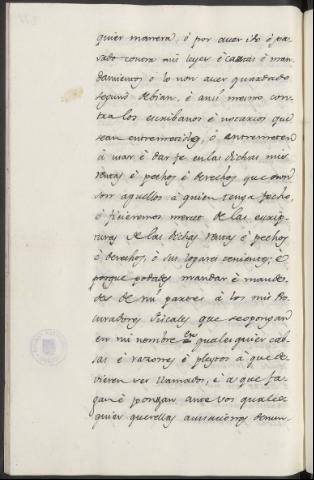 quier manera, ó por aver ido é pa-
sado contra mis leyes é cartas é man-
damientos ó lo non aver guardado
segund debian, é ansi mesmo con-
tra los escribanos é notarios que
sean entremetidos, ó entremeten
á usar é dar fe en las dichas mis
rentas é pechos é derechos que non
son aquellos á quien tengo fecho,
ó ficieremos merced de las escrip-
turas de las dichas rentas é pechos
é derechos, ó sus logares tenientes; é
porque podades mandar é mande-
des de mi partes á los mis Pro-
curadores fiscales que se opongan
en mi nombre en qualesquier cab-
sas é razones é pleytos á que de-
vieren ser llamados, é a que fa-
gan é pongan ante vos quales
quier querellas acusaciones denun-